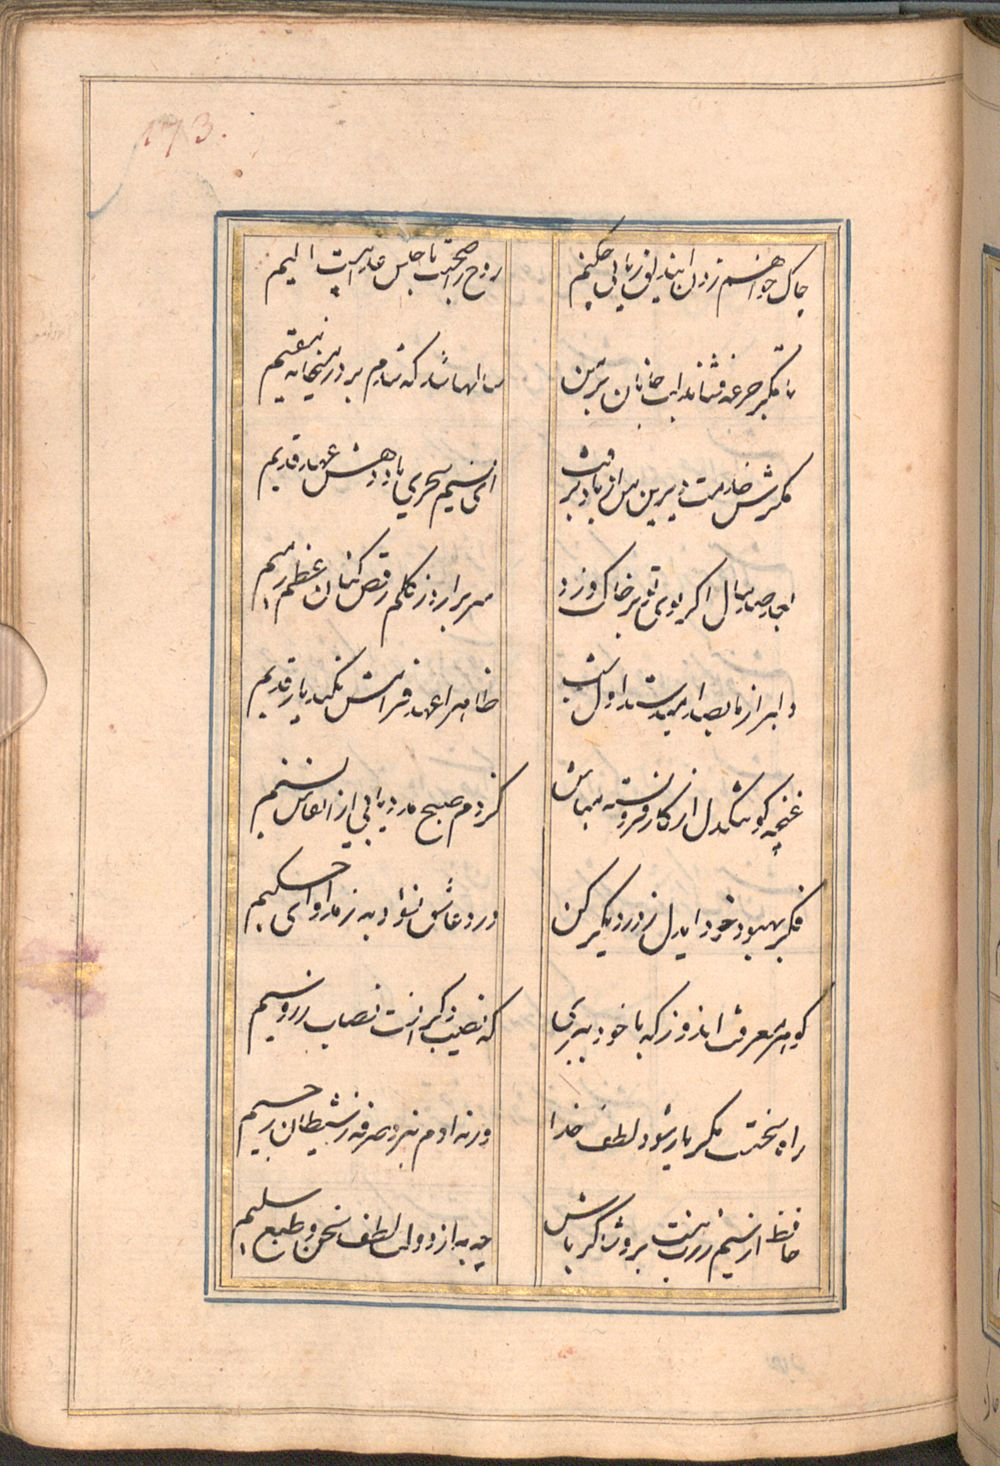 173.
چاک خواهم زدن این دلق ریایی چکنم
روح را صحبت نا جنس عذابیست الیم
تا مکر جرعه فشاند لب جانان بر من
سالها شد که شدم بر در میخانه مقیم
مکرش خدمت دیرین من از یاد برفت
ای نسیم سحری یاد دهش عهد قدیم
بعد صد سال اکر بوی تو بر خاک وزد
سر برارد ز کلم رقص کنان عظم رمیم
دلبر از ما بصد امید ستد اول دل
ظاهرا عهد فرامش نکند یار قدیم
غنچه کو تنکدل از کار فروبسته مباش
کز دم صبح مدد یابی از انفاس نسیم
فکر بهبود خود ایدل ز در دیکر کن
درد عاشق نشود به ز مداوای حکیم
کوهر معرفت اندوز که با خود ببری
که نصیب دکرانست نصاب زر و سیم
دام سختست مکر یار شود لطف خدا
ورنه ادم نبرد صرفه ز شیطان رجیم
حافظ ار سیم و زرت نیست برو شاکر باش
چه به از دولت لطف سخن و طبع سلیم